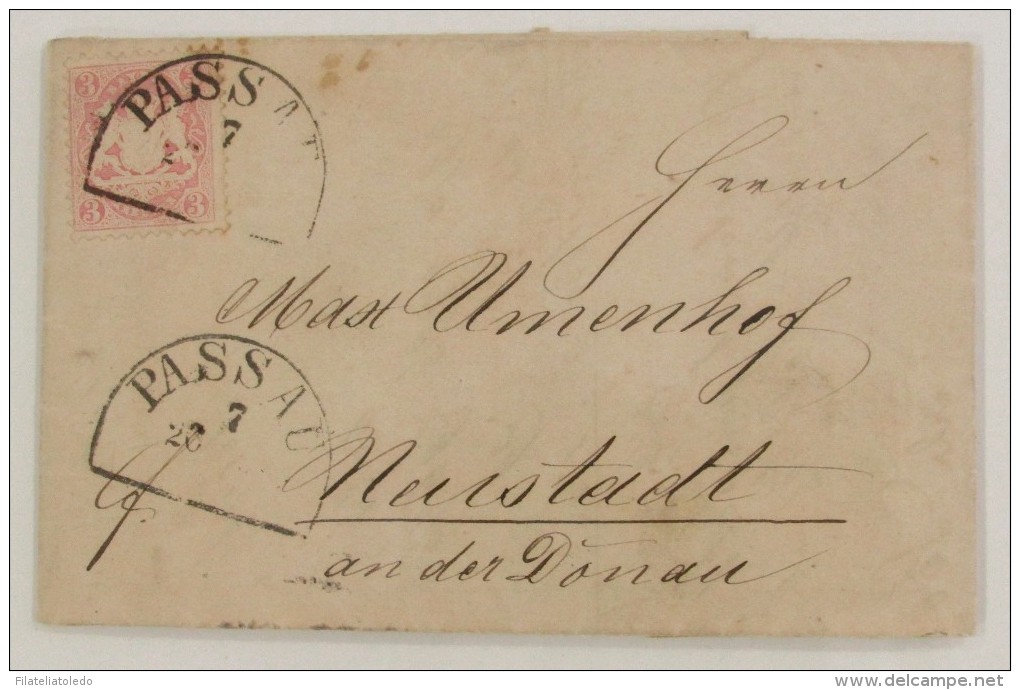 3 3
3 3
PASSAU
7
Herrn
Max Umenhof
PASSAU
7
Neustadt
an der Donau
Filateliatoledo
delcampe.net